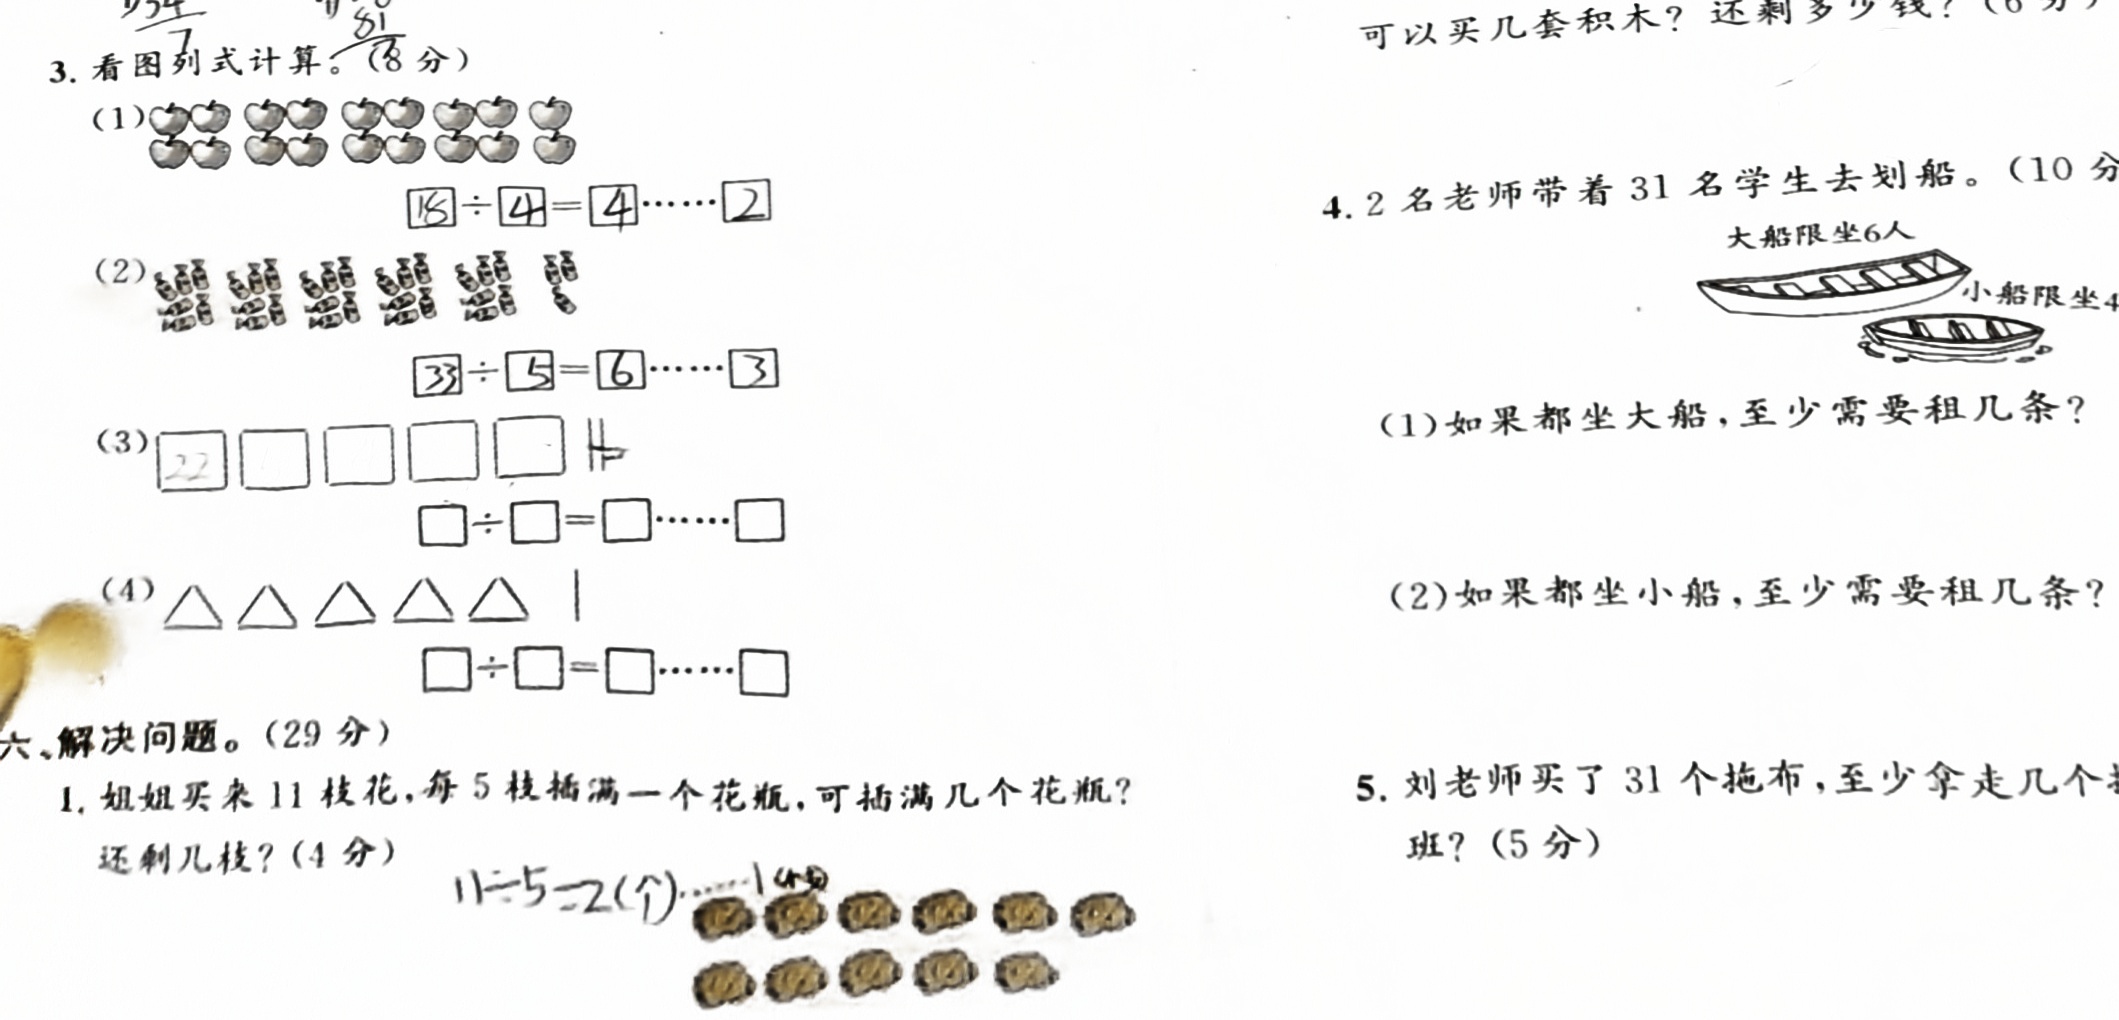 81
7
3. 看图列式计算。(8 分)
(1)
18÷4=4……2
(2)
33÷5=6……3
(3)
22
□÷□=□……□
(4)
□÷□=□……□
六、解决问题。(29 分)
1. 姐姐买来 11 枝花,每 5 枝插满一个花瓶,可插满几个花瓶?
还剩几枝?(4 分)
11÷5=2(个)……1
可以买几套积木? 还剩多少钱?(6 分)
4. 2 名老师带着 31 名学生去划船。(10 分
大船限坐6人
小船限坐4
(1)如果都坐大船,至少需要租几条?
(2)如果都坐小船,至少需要租几条?
5. 刘老师买了 31 个拖布,至少拿走几个
班?(5 分)